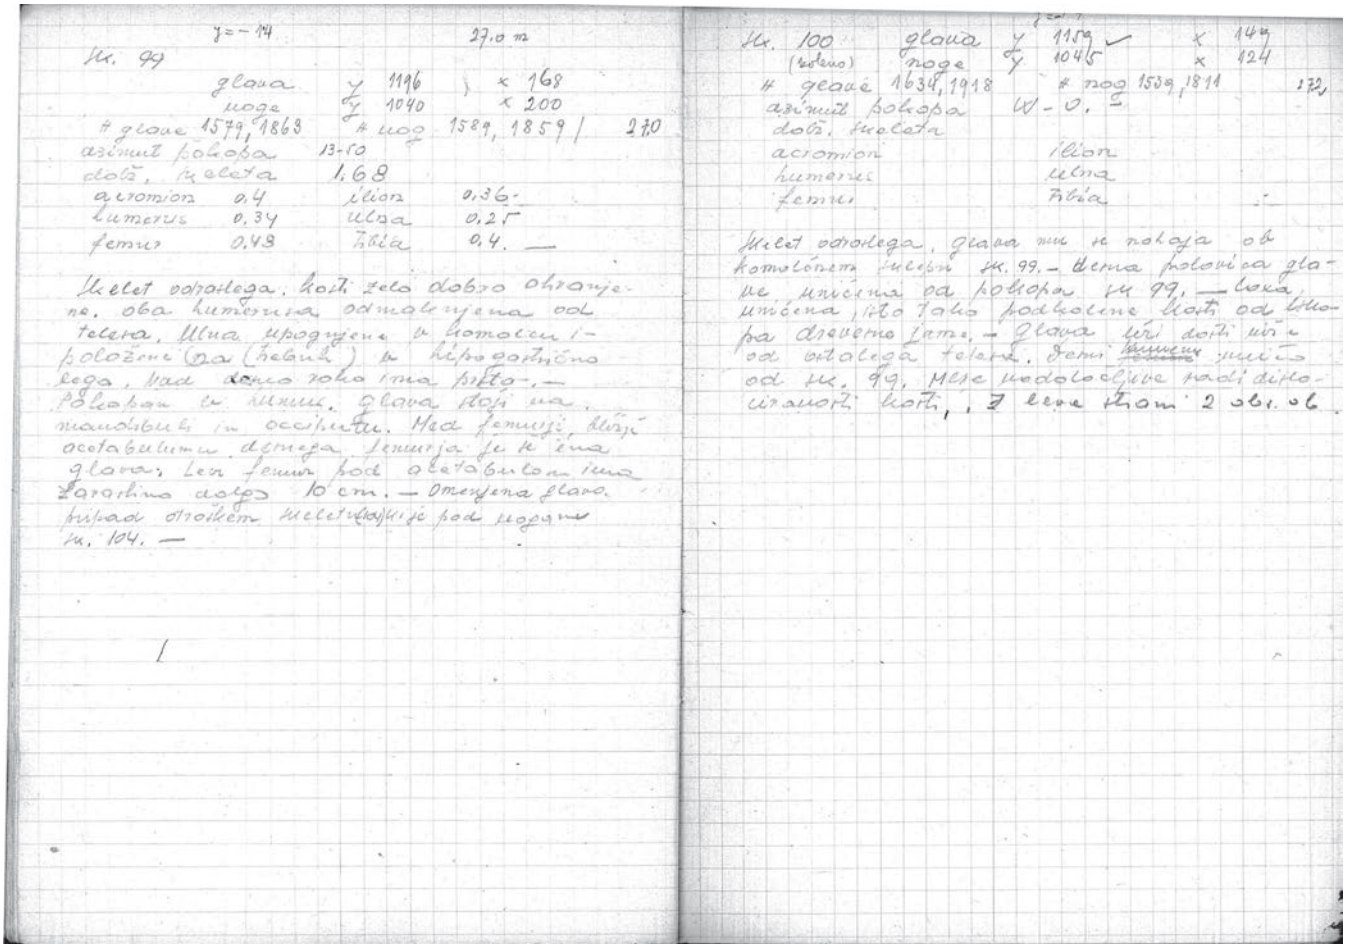 y = - 14 27.0 m
Sk. 99
glava y 1196 , x 168
noge y 1040 x 200
# glave 1579, 1863 # nog 1589, 1859 / 270
azimut pokopa 13-50
dolž. skeleta 1.68
acromion 0.4 ilion 0.36-
humerus 0.34 ulna 0.25
femur 0.43 tibia 0.4. —
Skelet odraslega. kosti zelo dobro ohranje-
ne. oba humerusa odmaknjena od
telesa. Ulna upognjene v komolcu i-
položene na (trebuh) v hipogastrično
lego. Nad desno roko ima prsta-. —
Pokopan v . glava stoji na
mandibuli in occiputu. Med femurji, bližje
acetabulumu desnega femurja je še ena
glava; Levi femur pod acetabulom ima
zaraslino dolgo 10 cm. — Omenjena glava.
pripad otroškem skeletu ki je pod nogami
sk. 104. —
Sk. 100 glava y 1159 ✓ x 149
(koleno) noge y 1045 x 124
# glave 1634, 1918 # nog 1539, 1811 272,
azimut pokopa W - O. =
dolž. skeleta
acromion ilion
humerus ulna
femur tibia
Skelet odraslega, glava mu se nahaja ob
komolčnem sklepu sk. 99. – desna polovica gla-
ve uničena od pokopa sk 99. —
uničena, isto tako podkolene kosti od
pa drevesne jame. – glava leži dosti više
od ostalega telesa. Desni uničo
od sk. 99. Mere nedoločljive radi dislo-
ciranosti kosti, , z leve strani 2 obs. ob